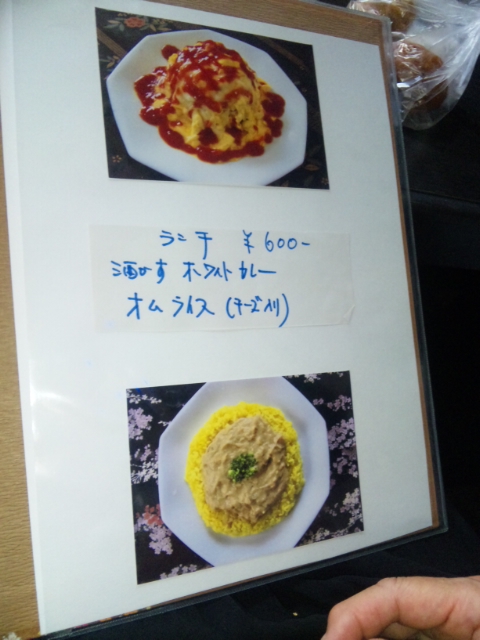 ランチ ¥600-
酒かす ホワイトカレー
オムライス(チーズ入り)